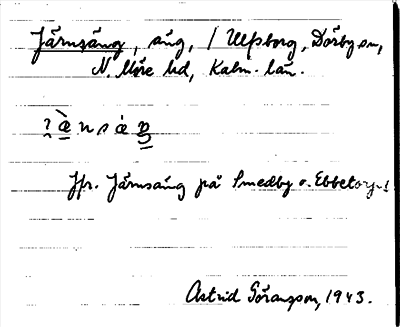 Järnsäng, äng, / Ulfsborg, Dörby sn,
N. Möre hd, Kalm. län.
Jfr. Järnsäng på Smedby o. Ebbetorps
Astrid Göransson, 1943.